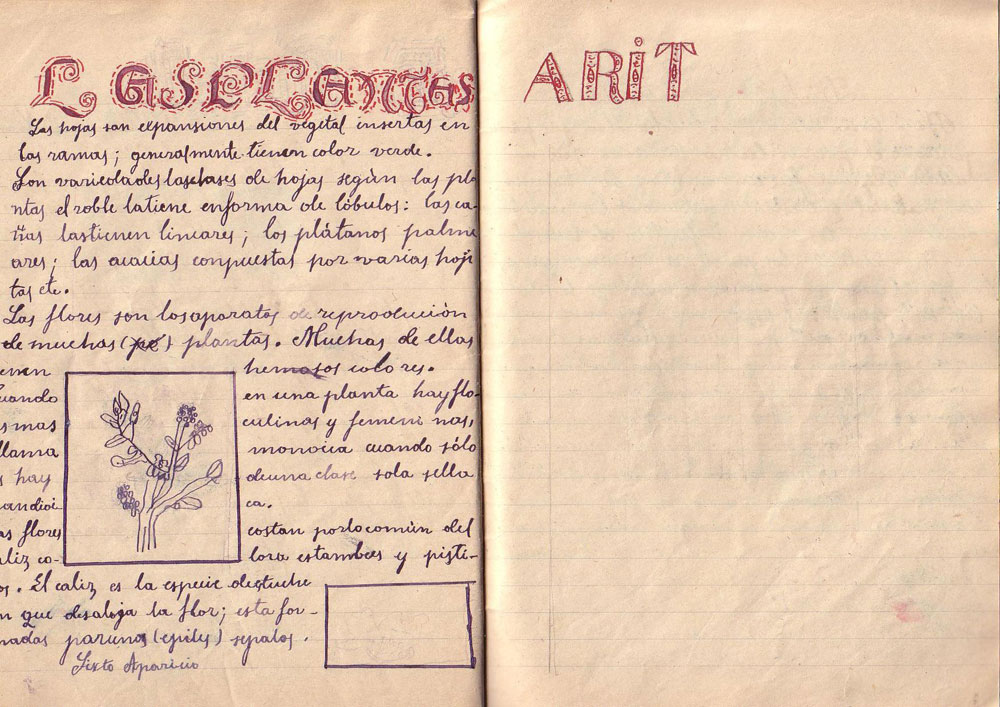 LAS PLANTAS
Las hojas son expansiones del vegetal insertas en
las ramas; generalmente tienen color verde.
Son variedades lasclases de hojas según las pla
ntas el roble latiene enforma de lóbulos: las ca
ñas lastienen lineares; los plátanos palme
ares; las acacias conpuestas por varias hoji
tas etc.
Las flores son losaparatos de reproducción
de muchas (po) plantas. Muchas de ellas
enen hemosos colores.
Cuando en una planta hay flo
smas culinas y femeni nas,
llama monoica cuando sólo
s hay deuna clase sola sella
andioi ca.
as flores costan porlocomún del
aliz co- lora estambres y pisti-
os. El caliz es la especie destuche
n que desaloja la flor; esta for-
madas parunos (epiles) sepalos.
Sixto Aparicio
ARIT